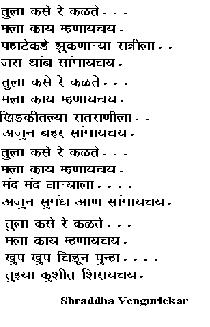 तुला कसे रे कळते...
मला काय म्हणायचय.
पहाटेकडे झुकणाऱ्या रात्रीला..
जरा थांब सांगायचय.
तुला कसे रे कळते...
मला काय म्हणायचय.
खिडकीतल्या रातराणीला..
अजुन बहर सांगायचय.
तुला कसे रे कळते...
मला काय म्हणायचय.
मंद मंद वाऱ्याला....
अजुन सुगंध आण सांगायचय.
तुला कसे रे कळते...
मला काय म्हणायचय.
खुप खुप चिडून पुन्हा....
तुझ्या कुशीत शिरायचय.
Shraddha Vengurlekar